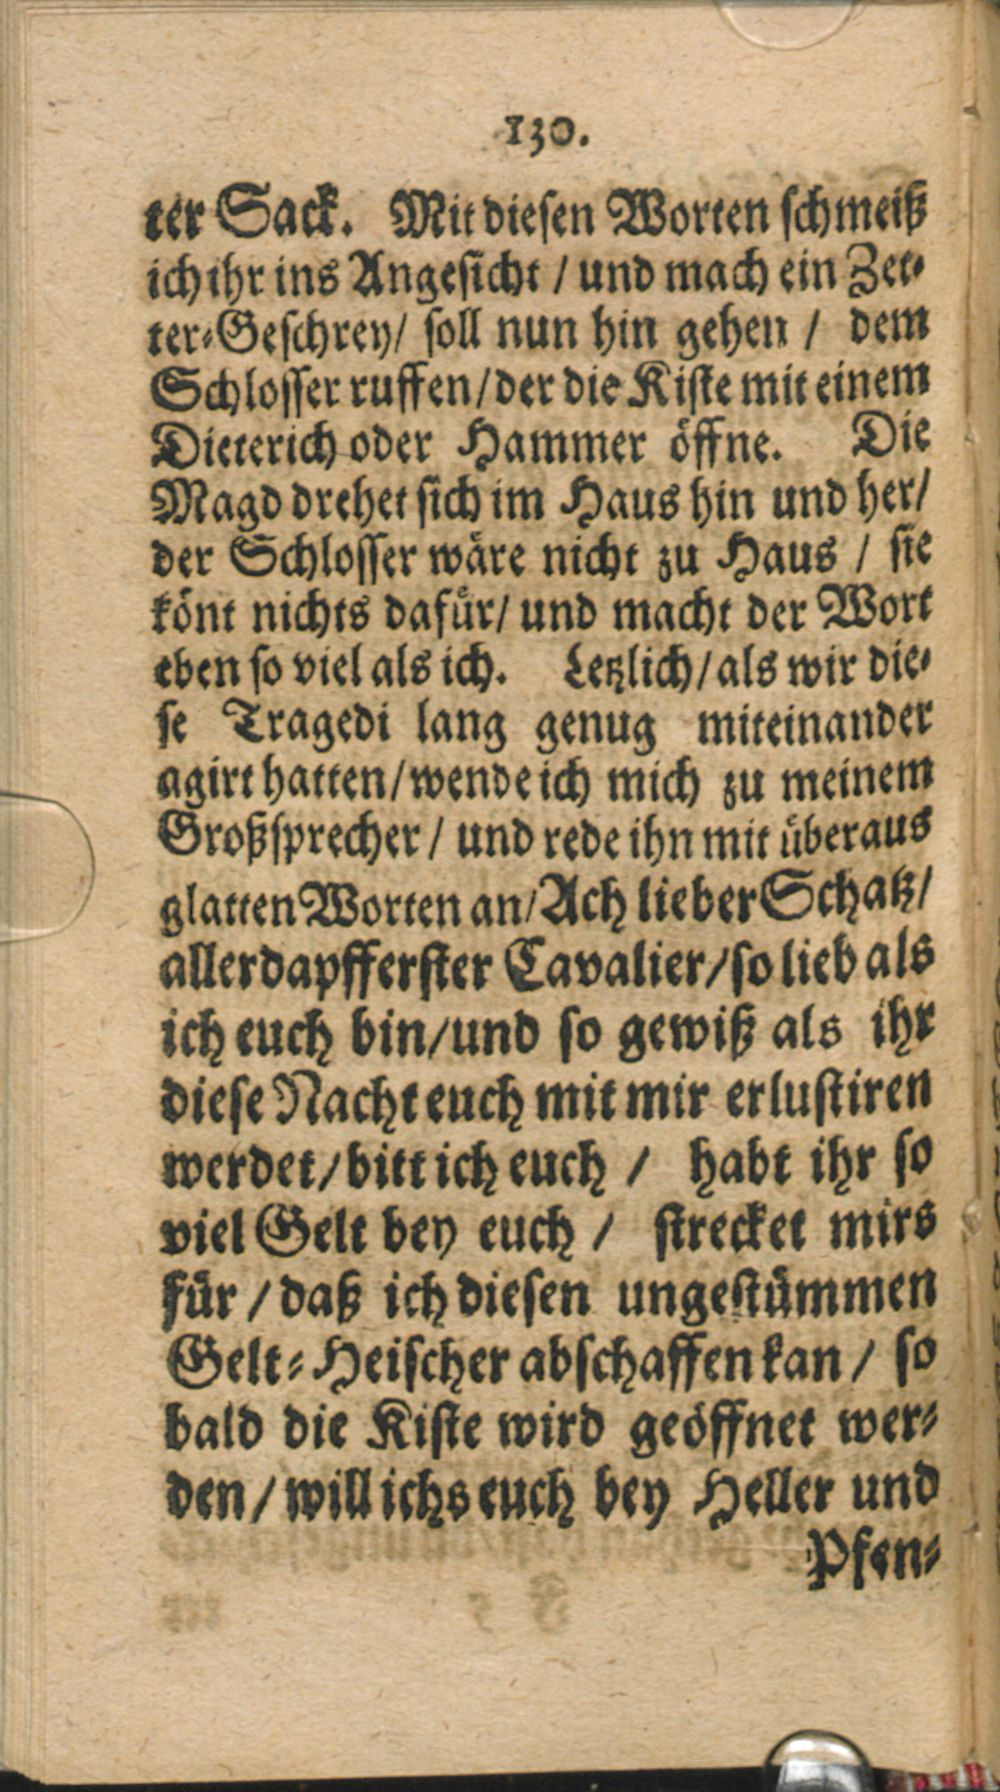 130.
ter Sack. Mit diesen Worten schmeiß
ich ihr ins Angesicht / und mach ein Zet-
ter-Geschrey / soll nun hin gehen / dem
Schlosser ruffen / der die Kiste mit einem
Dieterich oder Hammer öffne. Die
Magd drehet sich im Haus hin und her /
der Schlosser wäre nicht zu Haus / sie
könt nichts dafür / und macht der Wort
eben so viel als ich. Letzlich / als wir die-
se Tragedi lang genug miteinander
agirt hatten / wende ich mich zu meinem
Großsprecher / und rede ihn mit überaus
glatten Worten an / Ach lieber Schatz /
allerdapfferster Cavalier / so lieb als
ich euch bin / und so gewiß als ihr
diese Nacht euch mit mir erlustiren
werdet / bitt ich euch / habt ihr so
viel Gelt bey euch / strecket mirs
für / daß ich diesen ungestümmen
Gelt-Heischer abschaffen kan / so
bald die Kiste wird geöffnet wer-
den / will ichs euch bey Heller und
Pfen-